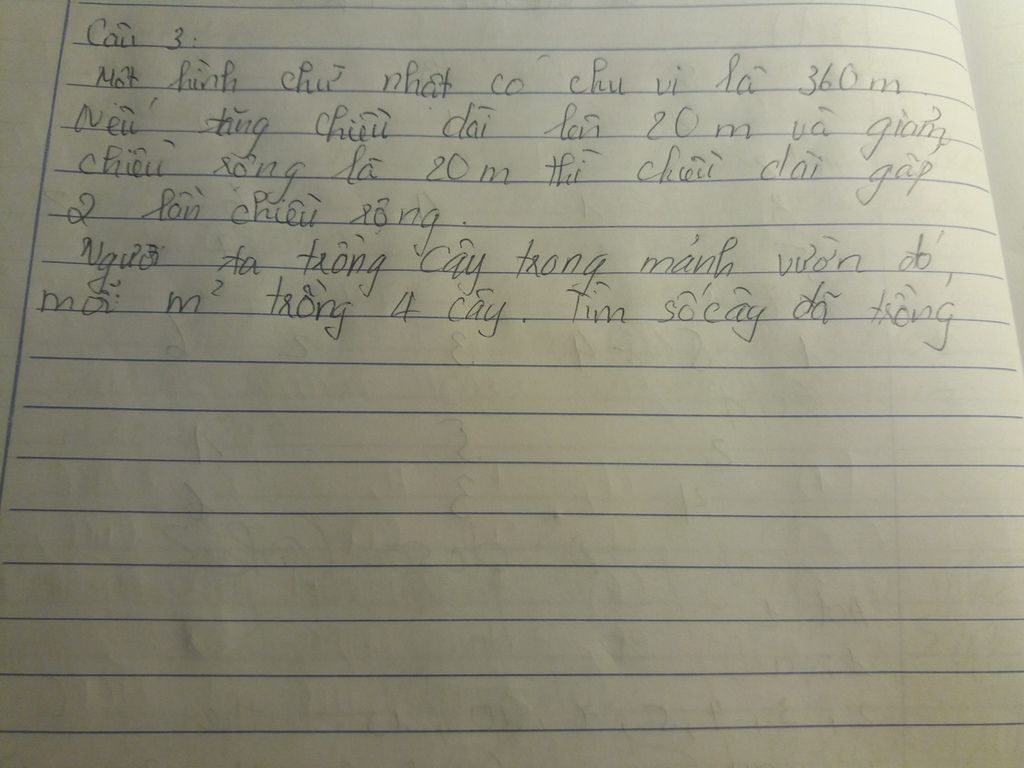 Câu 3:
Một hình chữ nhật có chu vi là 360 m.
Nếu tăng chiều dài lên 20 m và giảm
chiều rộng là 20 m thì chiều dài gấp
2 lần chiều rộng.
Người ta trồng cây trong mảnh vườn đó,
mỗi m² trồng 4 cây. Tìm số cây đã trồng